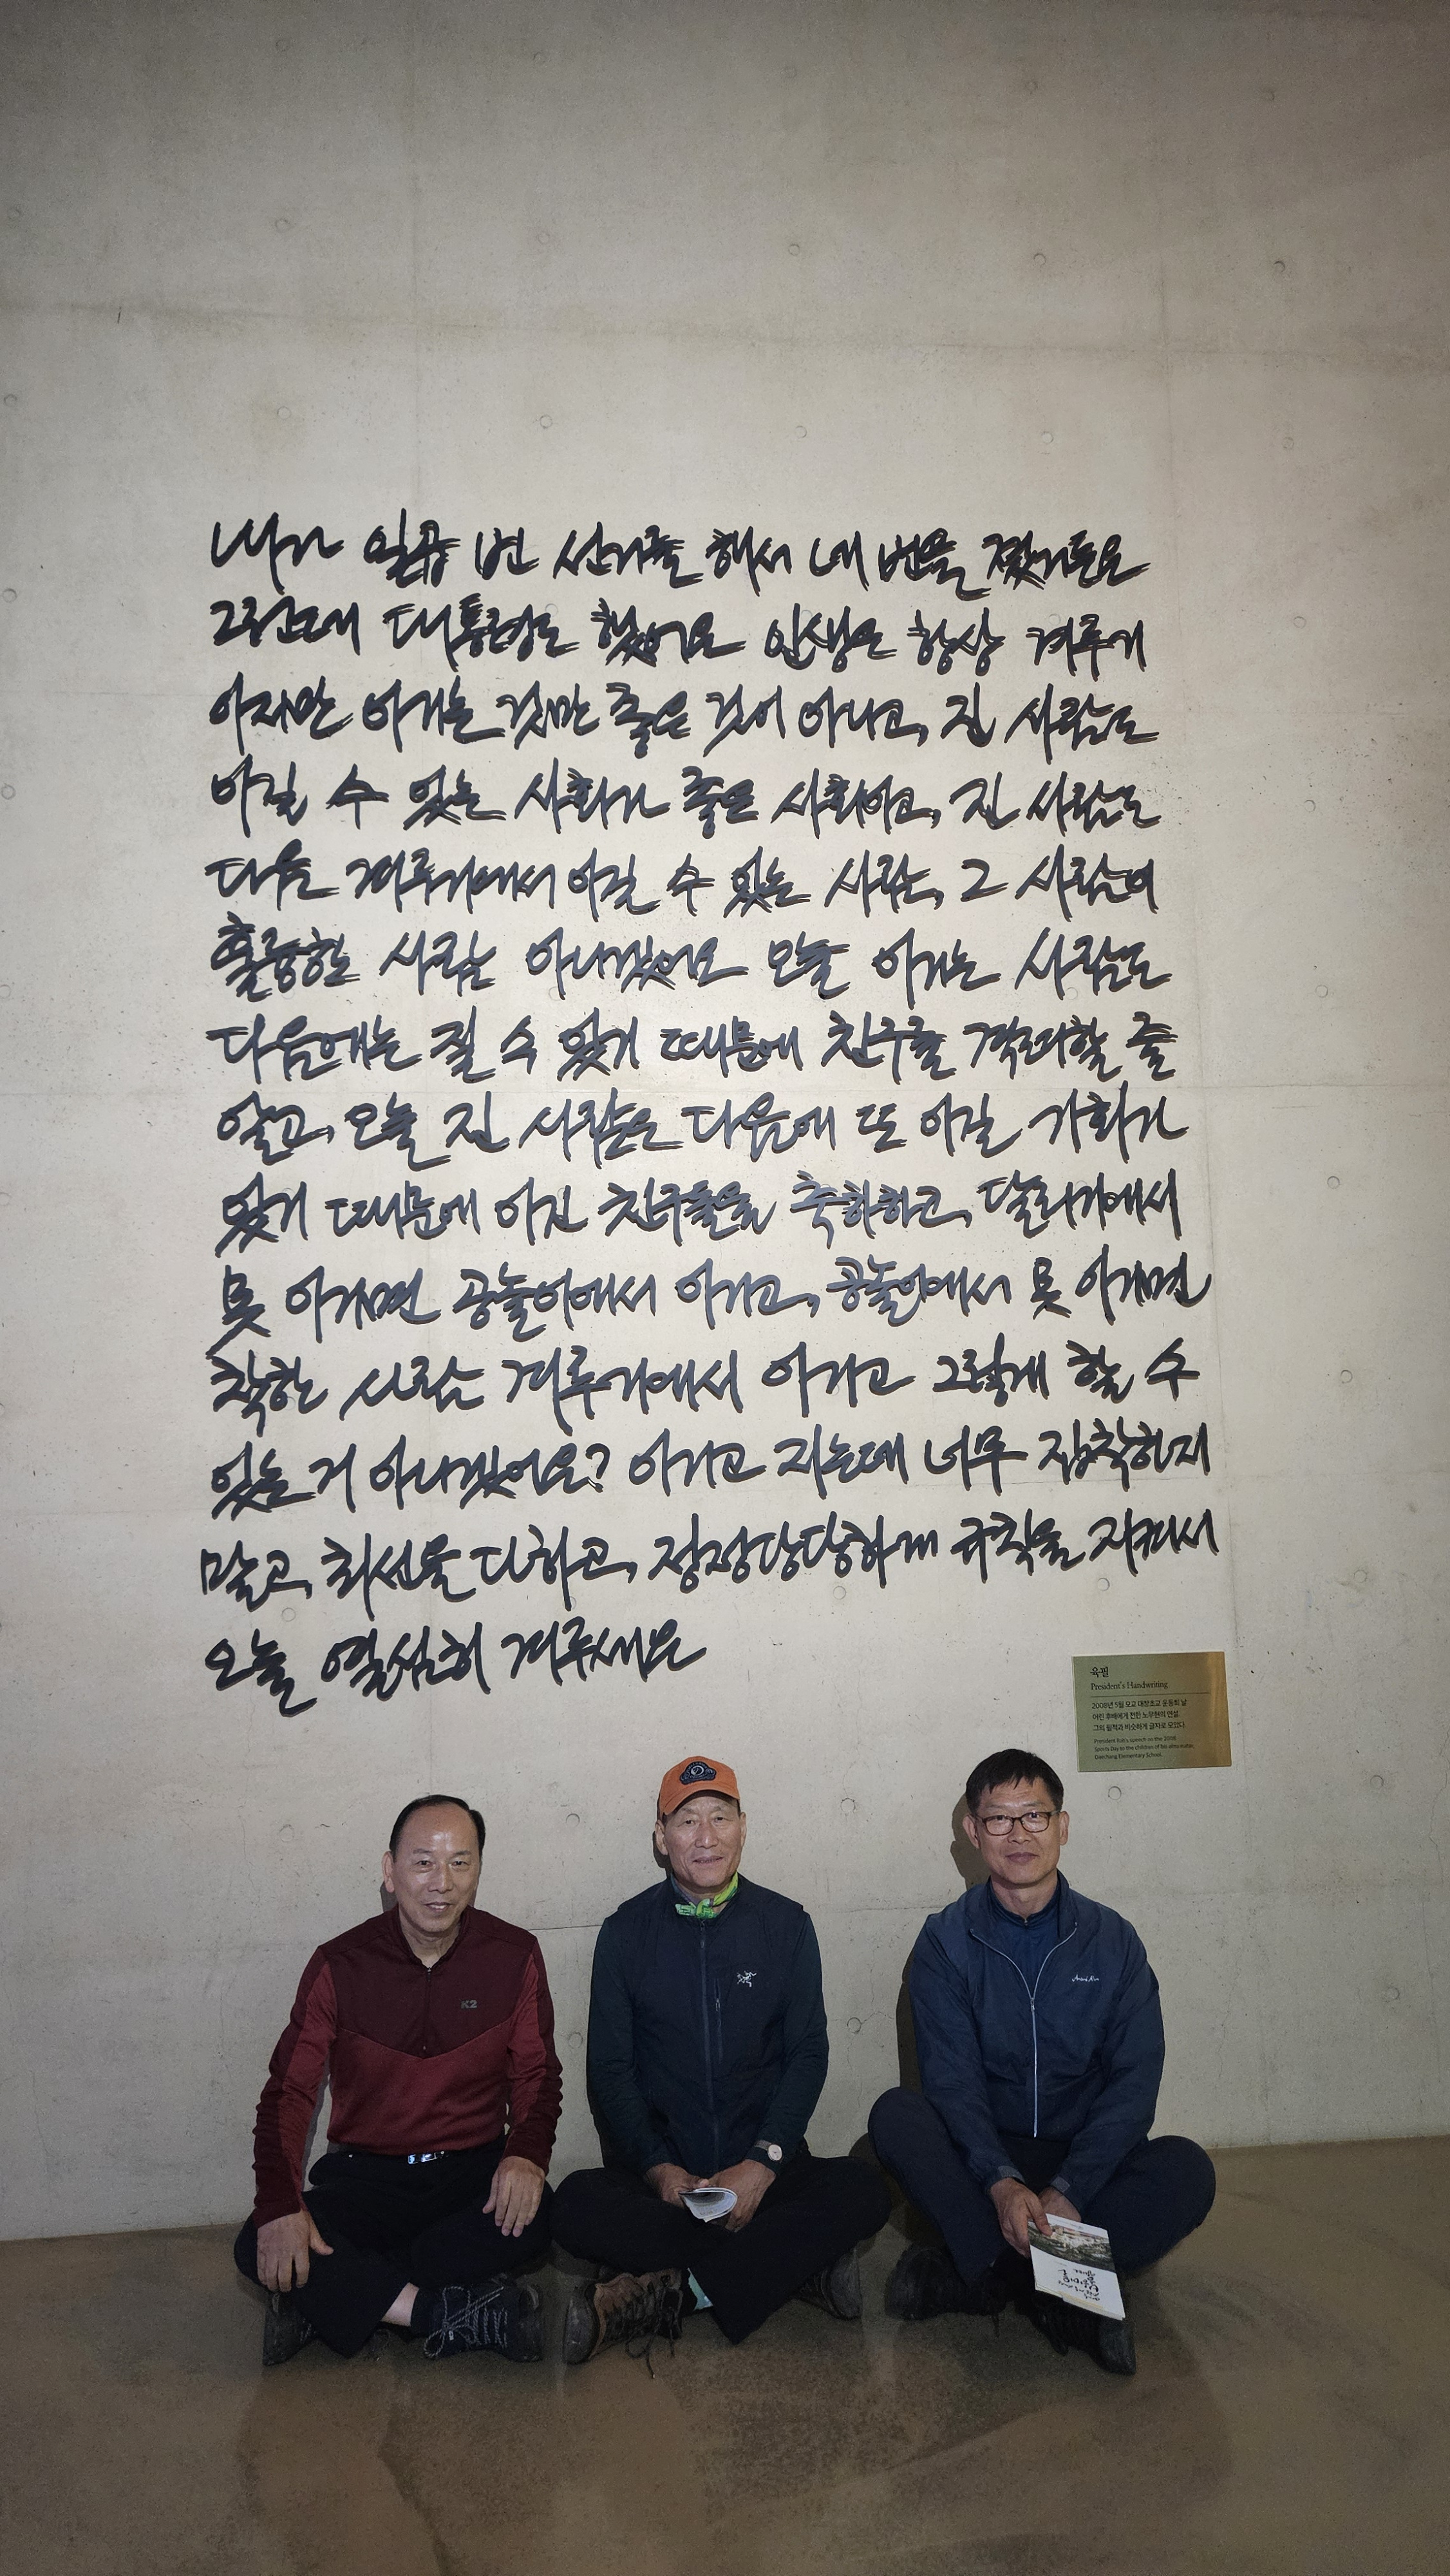 내가 일곱 번 선거를 해서 네 번을 졌거든요
그런데 대통령도 했어요 인생은 항상 겨루기
이지만 이기는 것만 좋은 것이 아니고, 진 사람도
이길 수 있는 사회가 좋은 사회이고, 진 사람도
다음 겨루기에서 이길 수 있는 사람, 그 사람이
훌륭한 사람 아니겠어요 오늘 이기는 사람도
다음에는 질 수 있기 때문에 친구를 격려할 줄
알고, 오늘 진 사람은 다음에 또 이길 기회가
있기 때문에 이긴 친구들을 축하하고, 달리기에서
못 이기면 공놀이에서 이기고, 공놀이에서 못 이기면
착한 사람 겨루기에서 이기고 그렇게 할 수
있는 거 아니겠어요? 이기고 지는데 너무 집착하지
말고, 최선을 다하고, 정정당당하게 규칙을 지켜서
오늘 열심히 겨루세요
육필
President's Handwriting
2008년 5월 모교 대창초교 운동회 날
어린 후배에게 전한 노무현의 연설.
그의 필적과 비슷하게 글자로 모았다.
President Roh's speech on the 2008
Sports Day to the children of his alma mater,
Daechang Elementary School.
K2